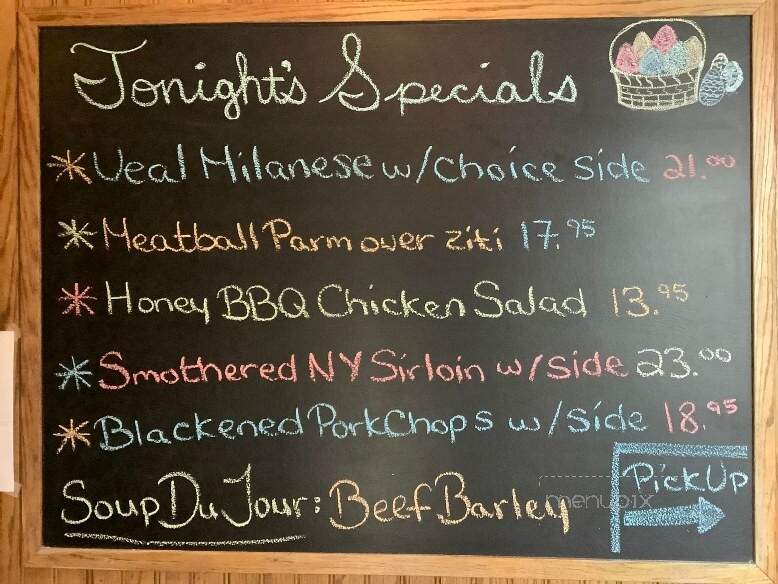 Tonight's Specials
Veal Milanese w/Choice Side 21.00
Meatball Parm over ziti 17.95
Honey BBQ Chicken Salad 13.95
Smothered NY Sirloin w/side 23.00
Blackened Pork Chops w/side 18.95
Soup Du Jour: Beef Barley
Pick Up
menupix